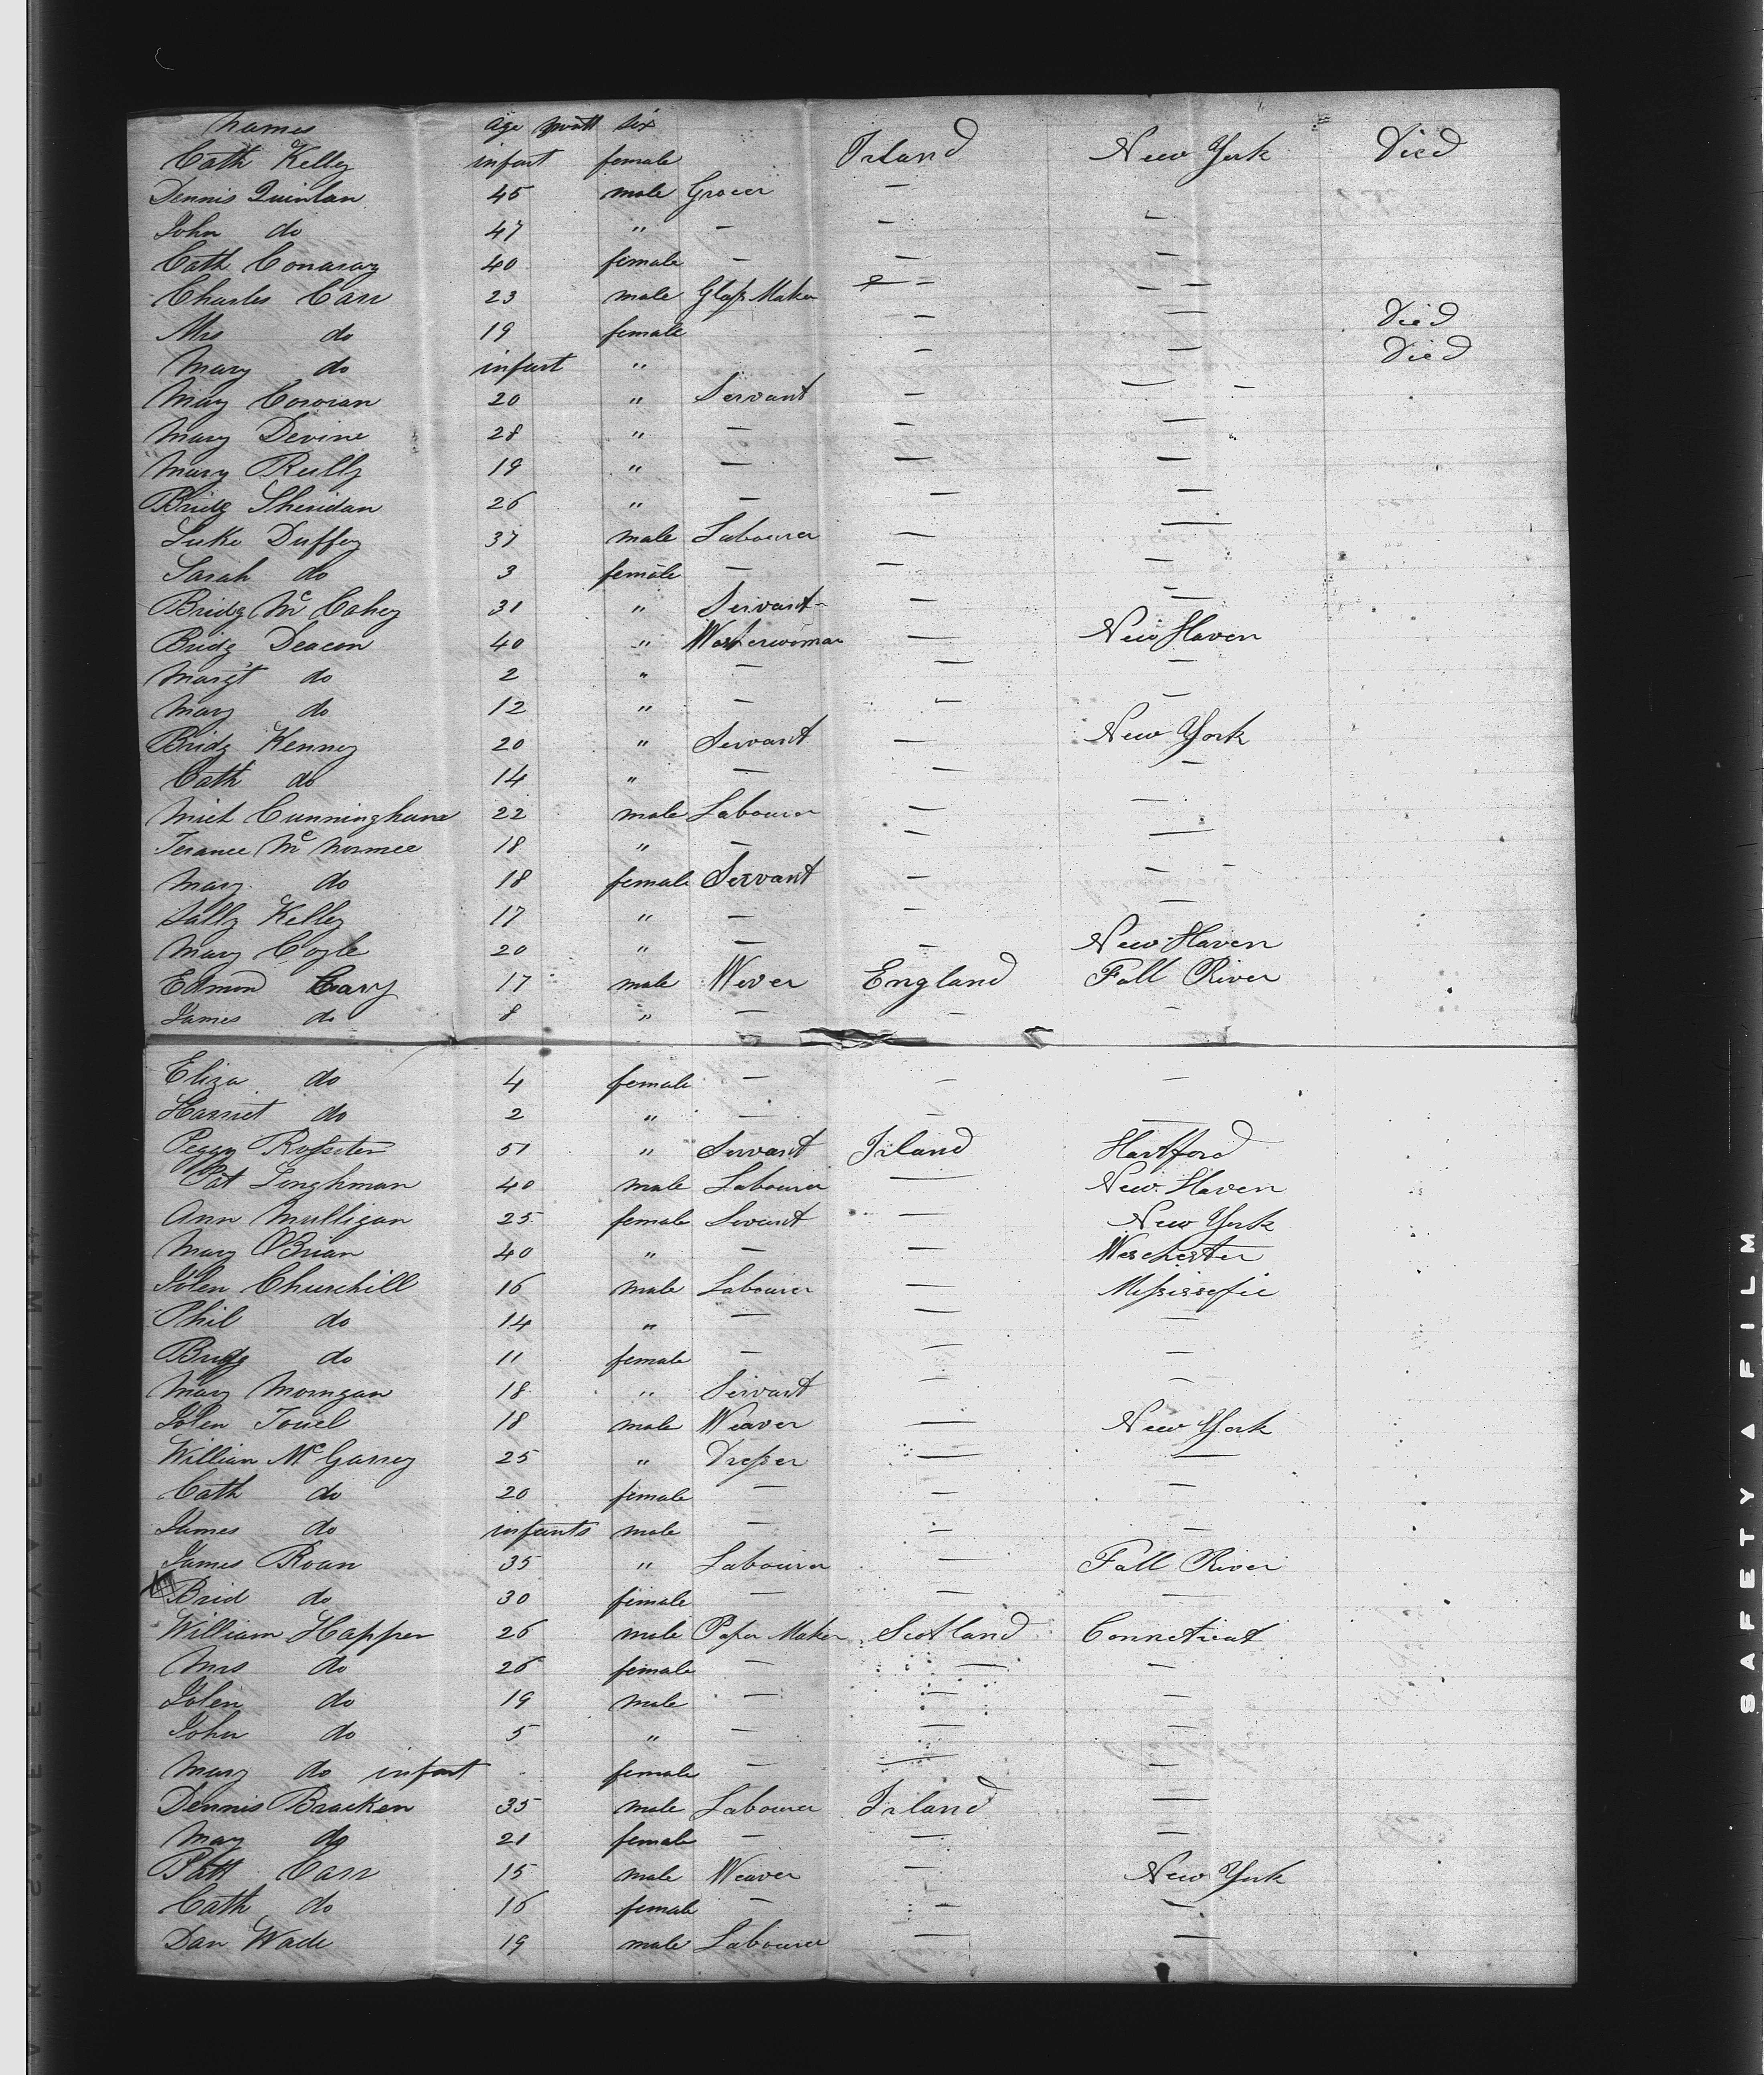 names age month sex
Cath Kelly infant female Irland New York Died
Dennis Quinlan 45 male Grocer —
John do 47 " — — —
Cath Conaray 40 female — — —
Charles Carr 23 male Glass Maker — — —
Mrs do 19 female — — Died
Mary do infant " — — Died
Mary Corovan 20 " Servant — — —
Mary Devine 28 " — — —
Mary Reilly 19 " — — —
Bridg Sheridan 26 " — — —
Luke Duffey 37 male Labourer — —
Sarah do 3 female — — —
Bridg Mc Cahey 31 " Servant — —
Bridg Deacon 40 " Washerwoman — New Haven
Margt do 2 " — — —
Mary do 12 " — — —
Bridg Kenney 20 " Servant — New York
Cath do 14 " — — —
Mich Cunningham 22 male Labourer — —
Terance Mc Normee 18 " — — —
Mary do 18 female Servant — — —
Sally Kelley 17 " — — —
Mary Coyle 20 " — — New Haven
Edmond Cary 17 male Wever England Fall River
James do 8 " — — —
Eliza do 4 female — — —
Harriet do 2 " — — —
Peggy Rosseter 51 " Servant Irland Hartford
Pat Lenghman 40 male Labourer — New Haven
Ann Mulligan 25 female Servant — New York
Mary O'Brian 40 " — — Weschester
Iolen Churchill 16 male Labourer — Mississsefie
Phil do 14 " — — —
Bridg do 11 female — — —
Mary Morngan 18 " Servant — —
Iolen Touel 18 male Weaver — New York
William McGarrey 25 " Dresser — —
Cath do 20 female — — —
James do infants male — — —
James Roan 35 " Labourer — Fall River
Brid do 30 female — — —
William Happer 26 male Paper Maker Scotland Conneticut
Mrs do 26 female — — —
Iolen do 19 male — — —
John do 5 " — — —
Mary do infant female — — —
Dennis Bracken 35 male Labourer Irland —
Mary do 21 female — — —
Patt Carr 15 male Weaver — New York
Cath do 16 female — — —
Dan Wade 19 male Labourer — —
SAFETY ▲ FILM